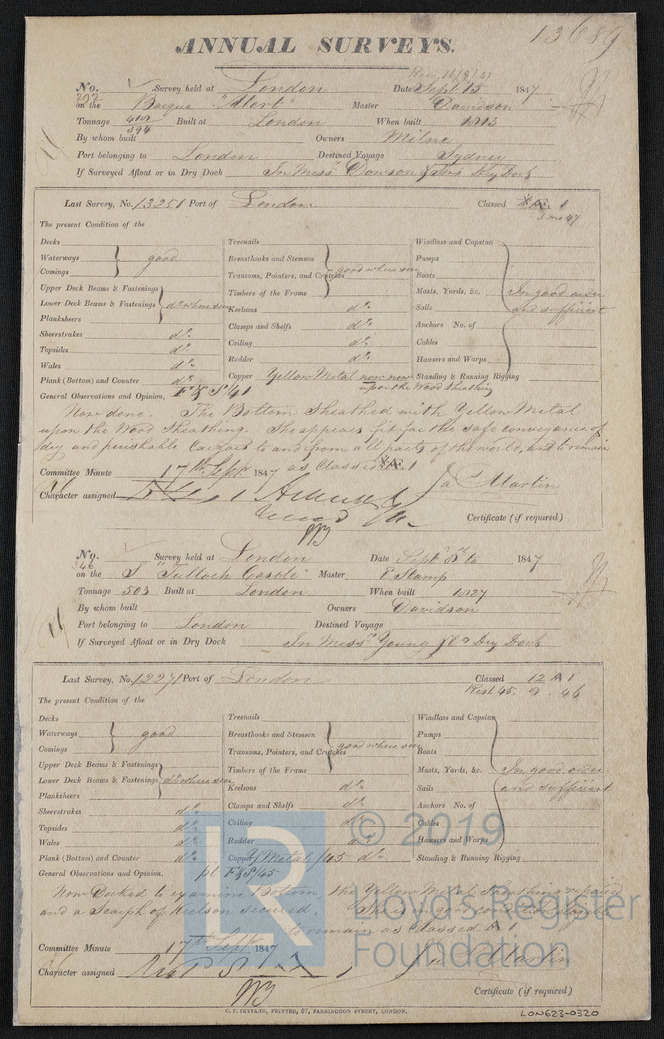 13689
ANNUAL SURVEYS.
Rec 16/9/47
No. 292 Survey held at London Date Sept 15 1847
on the Barque "Albert" Master Davidson
Tonnage 410/394 Built at London When built 1813
By whom built Owners Milne
Port belonging to London Destined Voyage Sydney
If Surveyed Afloat or in Dry Dock In Mess Dowson & Sons Dry Dock
Last Survey, No. 13251 Port of London Classed
5 mo 47
The present Condition of the
Decks
Waterways good
Comings
Upper Deck Beams & Fastenings
Lower Deck Beams & Fastenings do where seen
Planksheers
Sheerstrakes do
Topsides do
Wales do
Plank (Bottom) and Counter do
Treenails
Breasthooks and Stemson
Transoms, Pointers, and Crutches good where seen
Timbers of the Frame
Keelsons do
Clamps and Shelfs do
Ceiling do
Rudder do
Copper Yellow Metal now new
upon the Wood Sheathing
Windlass and Capstan
Pumps
Boats
Masts, Yards, &c. In good order
Sails and sufficient
Anchors No. of
Cables
Hawsers and Warps
Standing & Running Rigging
General Observations and Opinion,
Now done. The Bottom Sheathed with Yellow Metal
upon the Wood Sheathing. She appears fit for the safe conveyance of
dry and perishable Cargoes to and from all parts of the world, and to remain
as Classed Æ 1
Committee Minute 17th Sept 1847
Character assigned
Ja Martin
Certificate (if required)
No. 346 Survey held at London Date Sept 8th to 1847
on the S "Tulloch Castle" Master P Stamp
Tonnage 503 Built at London When built 1827
By whom built Owners Davidson
Port belonging to London Destined Voyage
If Surveyed Afloat or in Dry Dock In Mess Young & Co Dry Dock
Last Survey, No. 12271 Port of London Classed 12 A 1
Rest 45. 9. 46
The present Condition of the
Decks
Waterways good
Comings
Upper Deck Beams & Fastenings
Lower Deck Beams & Fastenings do where seen
Planksheers
Sheerstrakes do
Topsides do
Wales do
Plank (Bottom) and Counter do
Treenails
Breasthooks and Stemson
Transoms, Pointers, and Crutches good where seen
Timbers of the Frame
Keelsons do
Clamps and Shelfs do
Ceiling do
Rudder do
Copper Y Metal /45 do
Windlass and Capstan
Pumps
Boats
Masts, Yards, &c. In good order
Sails and sufficient
Anchors No. of
Cables
Hawsers and Warps
Standing & Running Rigging
General Observations and Opinion, pt F & S/45
Now Docked to examine Bottom, the Yellow Metal Sheathing repaired
and a Scarph of Keelson secured. She is in good condition &
to remain as Classed A 1
Committee Minute 17th Sept 1847
Character assigned
Jas Martin
Certificate (if required)
C. F. SEYFANG, PRINTER, 57, FARRINGDON STREET, LONDON.
LON623-0320
© 2019
Lloyd's Register
Foundation